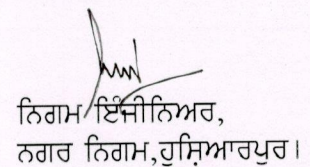 ਨਿਗਮ ਇੰਜੀਨਿਅਰ,
ਨਗਰ ਨਿਗਮ,ਹੁਸ਼ਿਆਰਪੁਰ।